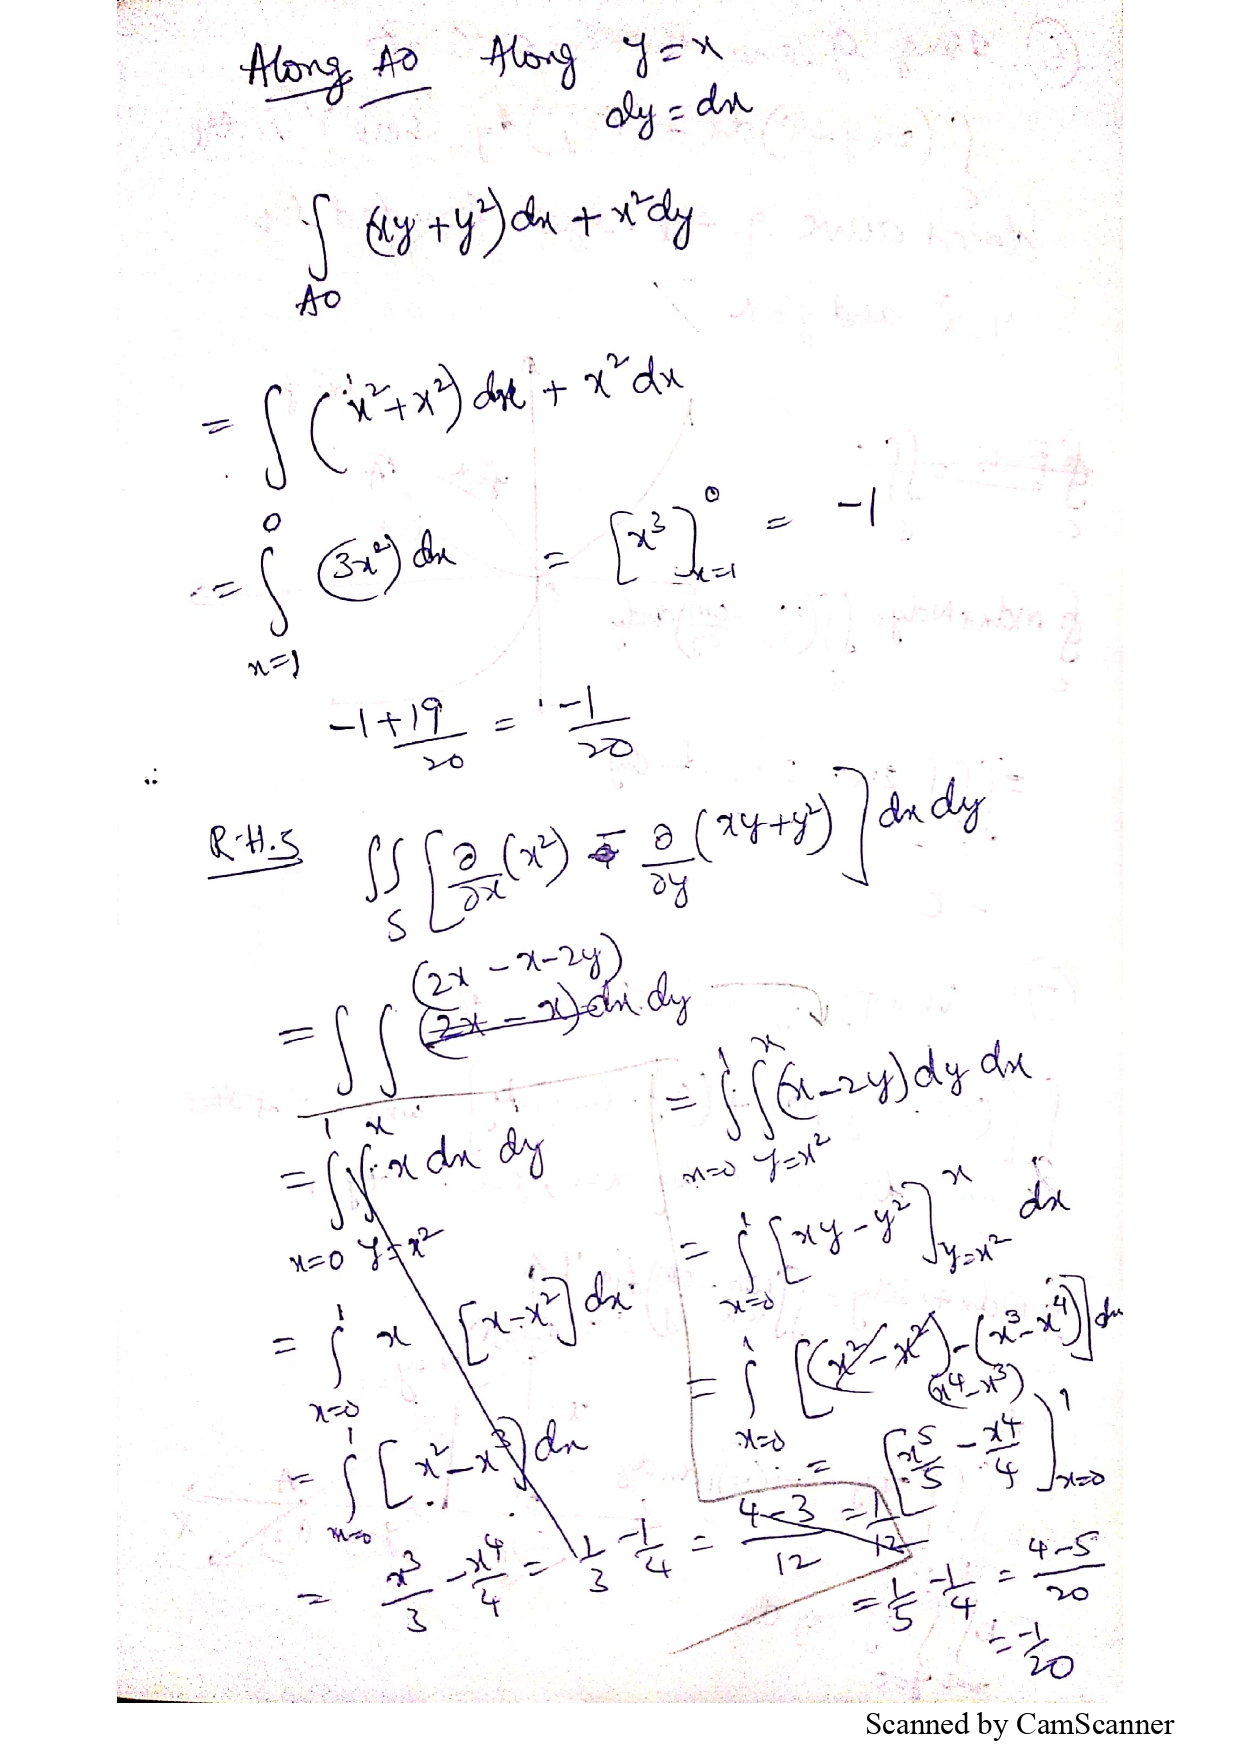 Along AO Along y = x
dy = dx
∫_AO (xy + y²) dx + x² dy
= ∫ (x² + x²) dx + x² dx
= ∫_{x=1}^{0} (3x²) dx = [x³]_{x=1}^{0} = -1
-1 + 19/20 = -1/20
∴
R.H.S ∬_S [∂/∂x (x²) - ∂/∂y (xy + y²)] dx dy
(2x - x - 2y)
= ∫∫ (2x - x) dx dy
= ∫_{x=0}^{1} ∫_{y=x²}^{x} x dx dy
= ∫_{x=0}^{1} x [x - x²] dx
= ∫_{x=0}^{1} [x² - x³] dx
= x³/3 - x⁴/4 = 1/3 - 1/4 = 4-3/12 = 1/12
= ∫_{x=0}^{1} ∫_{y=x²}^{x} (x - 2y) dy dx
= ∫_{x=0}^{1} [xy - y²]_{y=x²}^{x} dx
= ∫_{x=0}^{1} [(x² - x²) - (x³ - x⁴)] dx
(x⁴ - x³)
= [x⁵/5 - x⁴/4]_{x=0}^{1}
= 1/5 - 1/4 = 4-5/20
= -1/20
Scanned by CamScanner